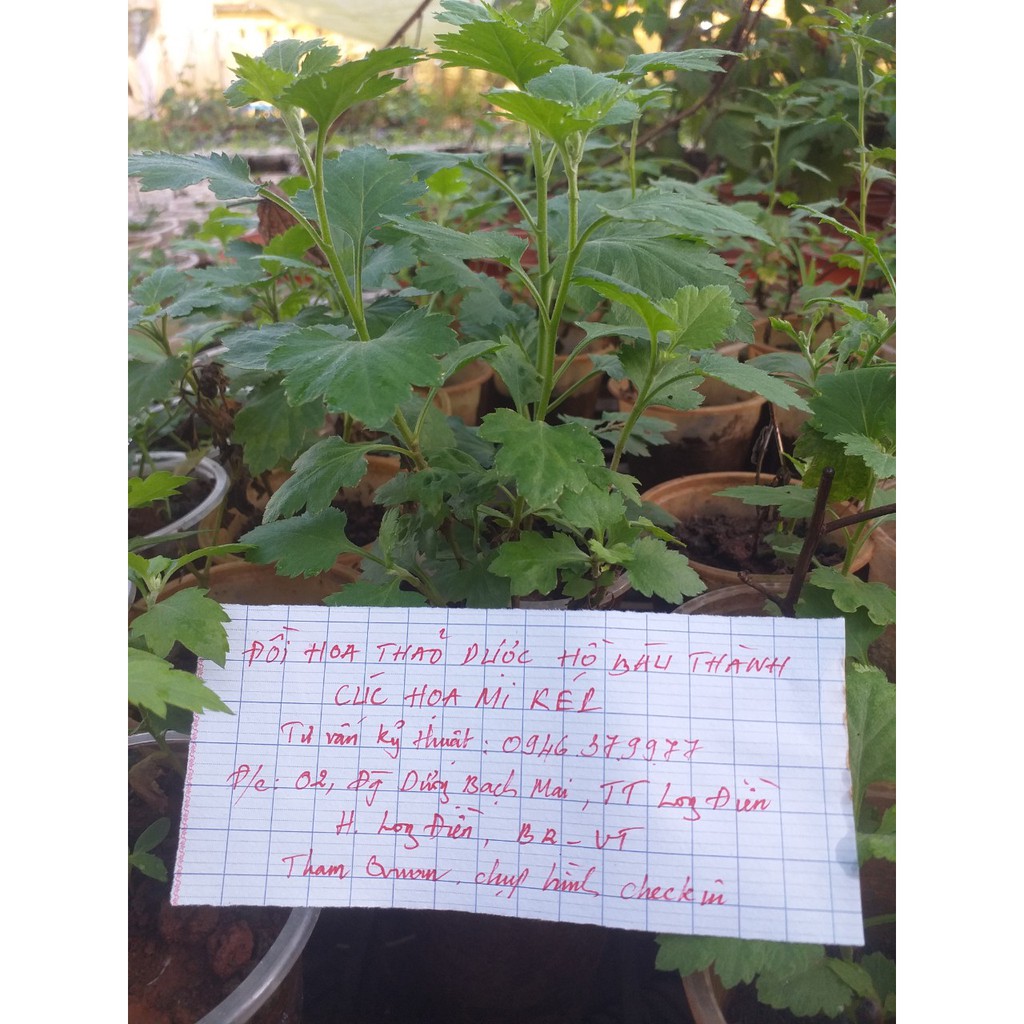 ĐỒI HOA THẢO DƯỢC HỒ BẦU THÀNH
CÚC HOA MI KÉP
Tư vấn kỹ thuật: 0946.379977
Đ/c: 02, Đg Dương Bạch Mai, TT Long Điền
H. Long Điền, BR-VT
Tham Quan, chụp hình, check in